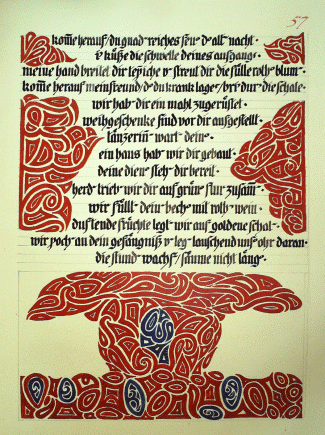 57
kom̅e herauf / du gnad reiches feu' d' alt nacht ·
i küße die schwelle deines aufgangs ·
meine hand breitet dir teppiche v streut dir die fülle roth' blum ·
kom̅e herauf mein freund / d' du krank lage / bri dur die schale ·
wir hab' dir ein mahl zugerüstet ·
weihgeschenke sind vor dir aufgestellt ·
tänzerin̅ wart' dein ·
ein haus hab' wir dir gebaut ·
deine dien' steh dir bereit ·
herd' trieb' wir dir auf grün' flur zusam̅ ·
wir füllt' dein' bech' mit roth' wein ·
duftende früchte legt' wir auf goldene schal' ·
wir poch' an dein gefängniß v leg' lauschend uns' ohr daran ·
die stund' wachs' / säume nicht läng' ·